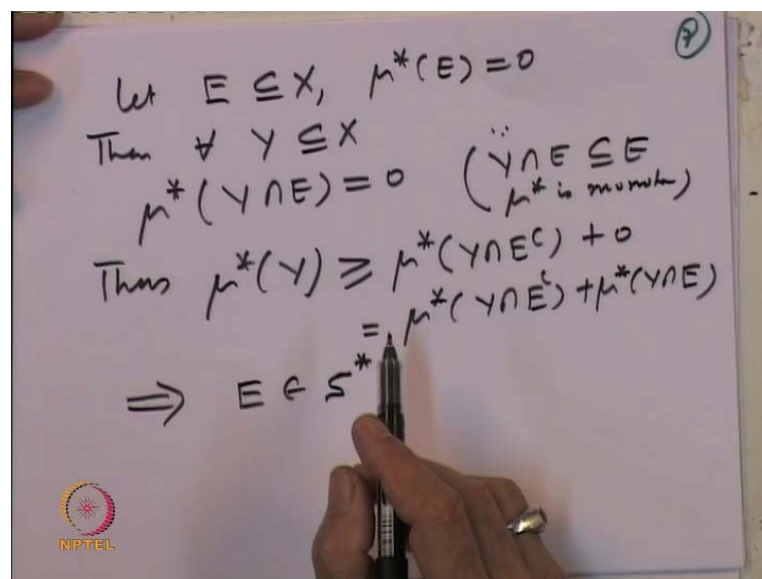 7
Let E ⊆ X, μ*(E) = 0
Then ∀ Y ⊆ X
μ*(Y ∩ E) = 0 (∵ Y ∩ E ⊆ E
μ* is monotone)
Thus μ*(Y) ≥ μ*(Y ∩ Eᶜ) + 0
= μ*(Y ∩ Eᶜ) + μ*(Y ∩ E)
⟹ E ∈ S*
NPTEL